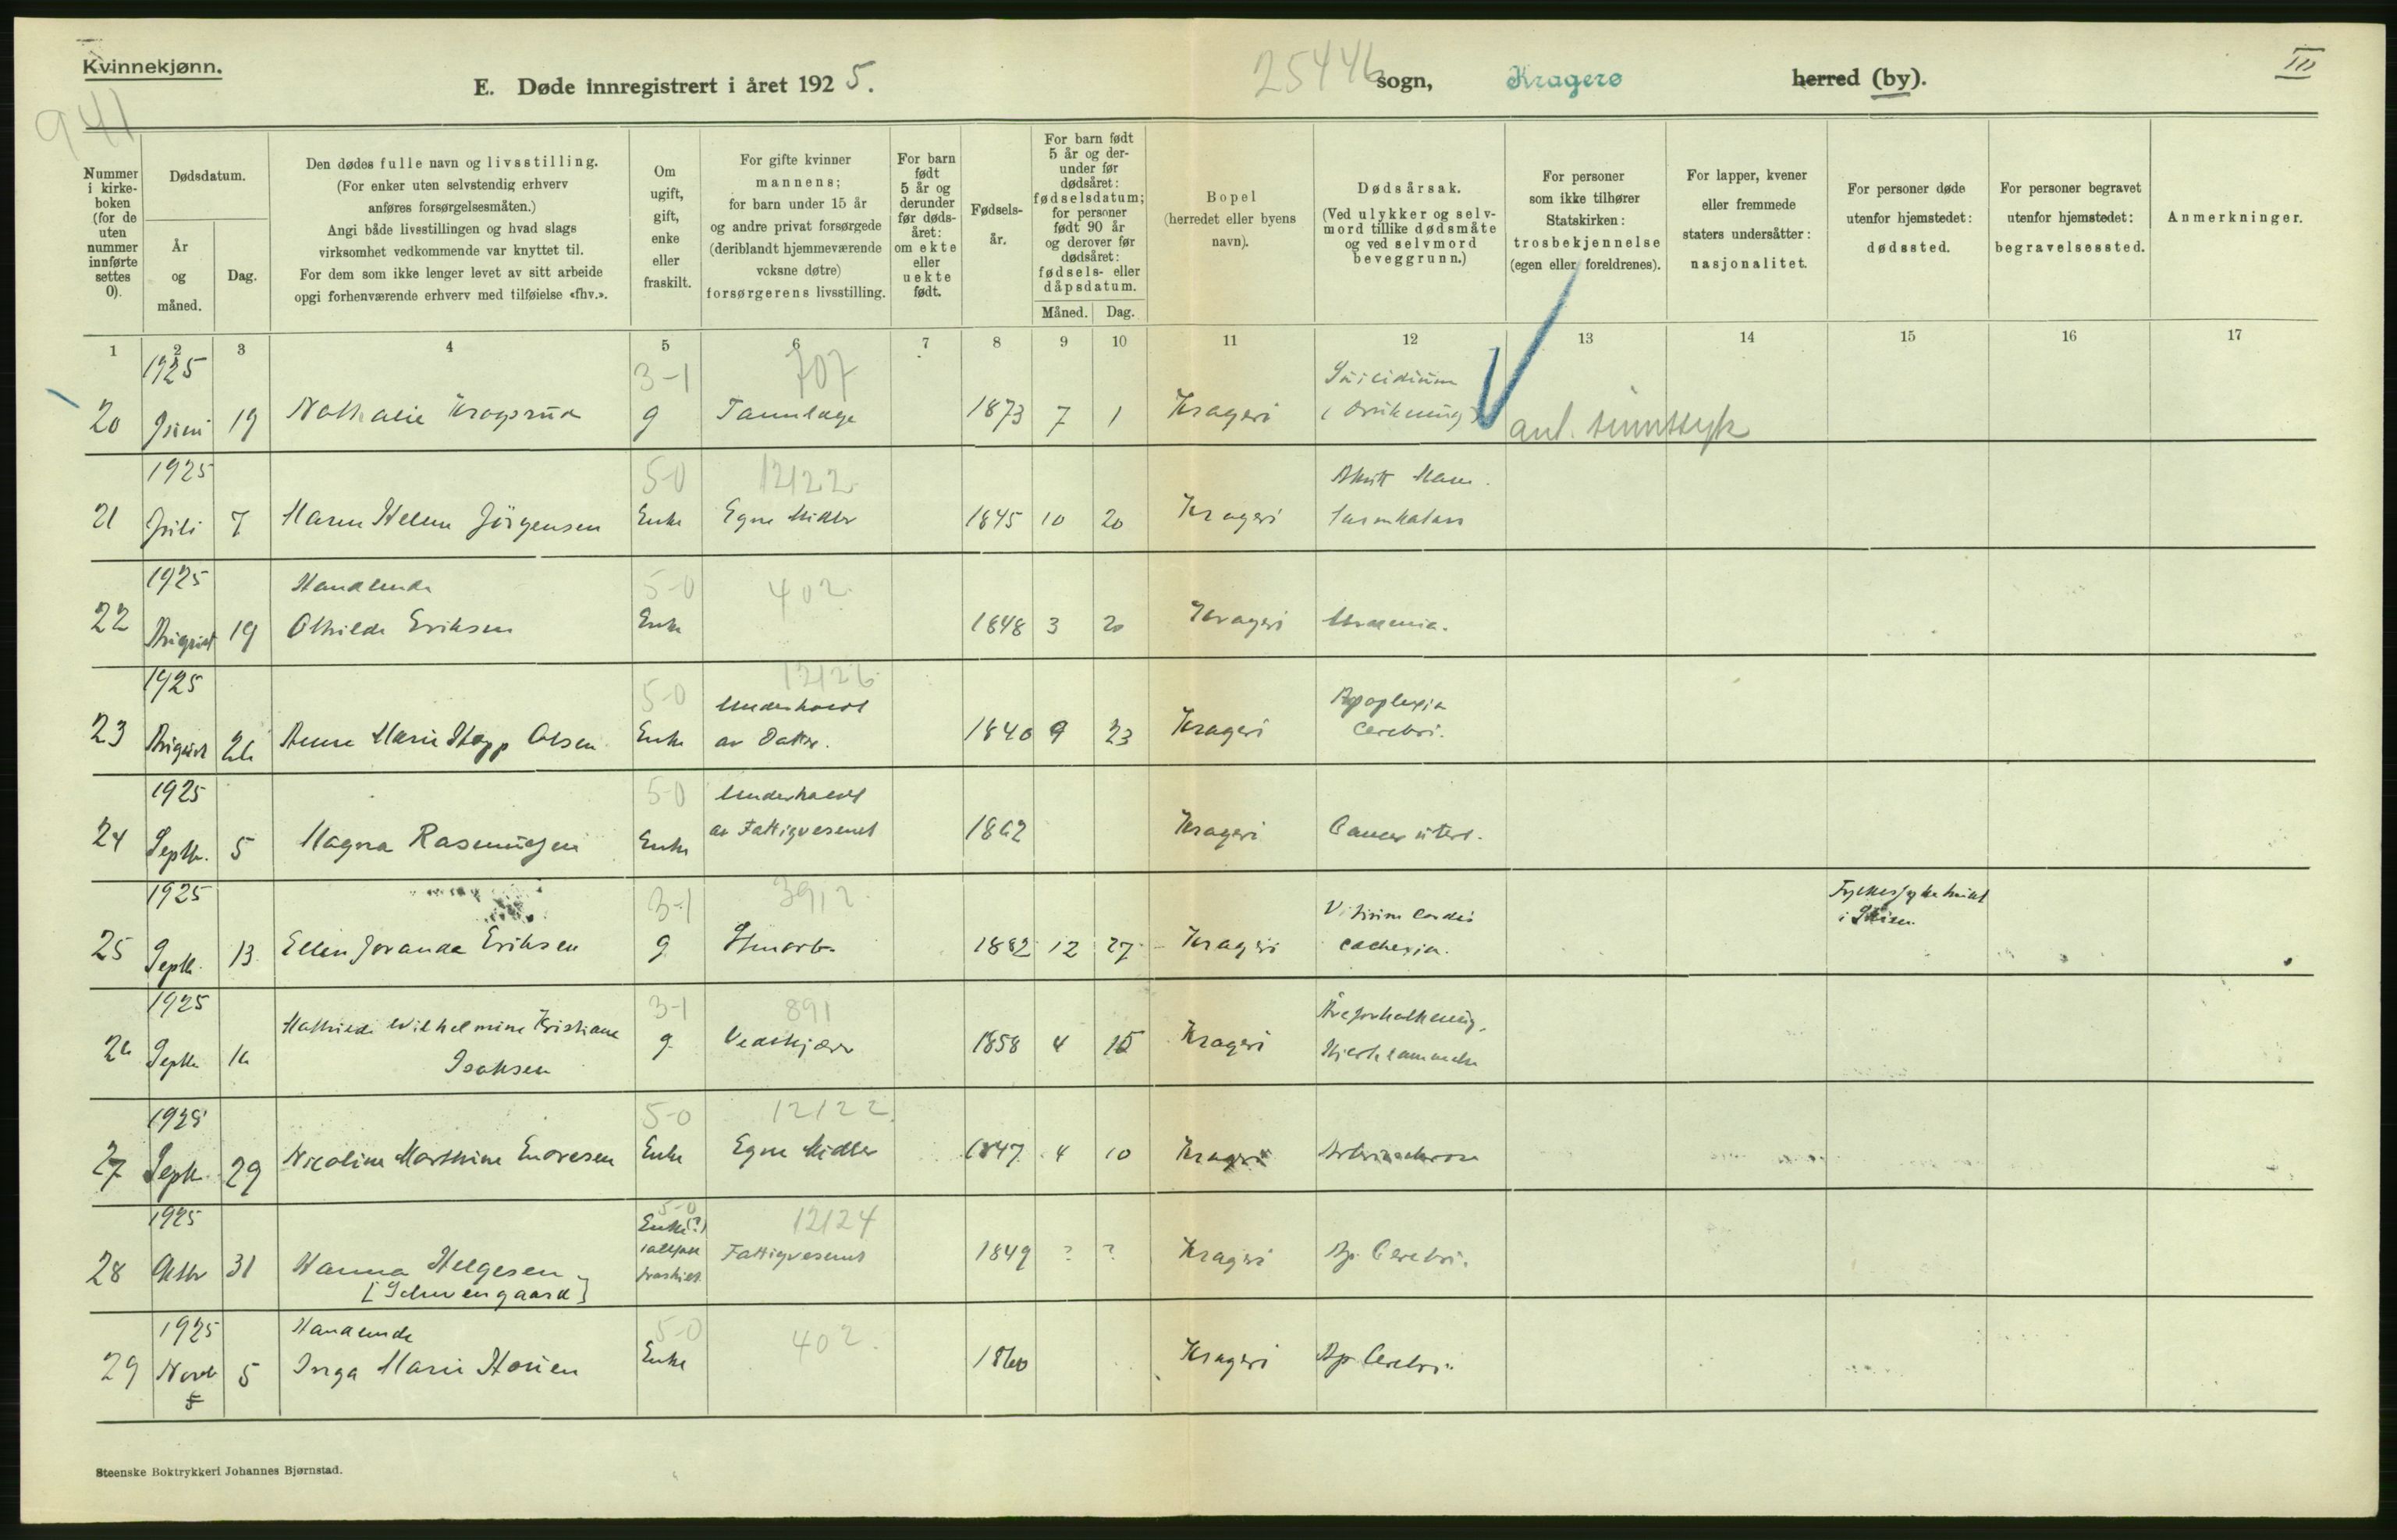 Kvinnekjønn.
E. Døde innregistrert i året 1925.
25446
sogn,
Kragerø
herred (by).
III
941
Nummer i kirke-boken (for de uten nummer innførte settes 0).
Dødsdatum.
År og måned.
Dag.
Den dødes fulle navn og livsstilling.
(For enker uten selvstendig erhverv
anføres forsørgelsesmåten.)
Angi både livsstillingen og hvad slags
virksomhet vedkommende var knyttet til.
For dem som ikke lenger levet av sitt arbeide
opgi forhenværende erhverv med tilføielse «fhv.».
Om ugift, gift, enke eller fraskilt.
For gifte kvinner
mannens;
for barn under 15 år
og andre privat forsørgede
(deriblandt hjemmeværende
voksne døtre)
forsørgerens livsstilling.
For barn født 5 år og derunder før døds-året: om ekte eller uekte født.
Fødsels-år.
For barn født 5 år og der-under før dødsåret: fødselsdatum; for personer født 90 år og derover før dødsåret: fødsels- eller dåpsdatum.
Måned.
Dag.
Bopel
(herredet eller byens
navn).
Dødsårsak.
(Ved ulykker og selv-
mord tillike dødsmåte
og ved selvmord
beveggrunn.)
For personer
som ikke tilhører
Statskirken:
trosbekjennelse
(egen eller foreldrenes).
For lapper, kvener
eller fremmede
staters undersåtter:
nasjonalitet.
For personer døde
utenfor hjemstedet:
dødssted.
For personer begravet
utenfor hjemstedet:
begravelsessted.
Anmerkninger.
1 2 3 4 5 6 7 8 9 10 11 12 13 14 15 16 17
1925 3-1 707 Suicidium
20 Juni 19 Nathalie Kragsrud g Tannlæge 1873 7 1 Kragerø (Drukning) ant. sinnssyk
1925 5-0 12122 Akutt Mave
21 Juli 7 Maren Helene Jörgensen Enke Egne Midler 1845 10 20 Kragerø tarmkatarr
1925 Handlende 5-0 402
22 August 19 Othilde Eriksen Enke 1848 3 20 Kragerø Uraemia.
1925 5-0 12126 Underholdt Apoplexia
23 August 26 Anne Marie Stapp Olsen Enke av Datter. 1840 9 23 Kragerø Cerebri.
1925 5-0 Underholdt
24 Septbr. 5 Magna Rasmussen Enke av Fattigvesenet 1862 Kragerø Cancer uteri.
1925 3-1 3912 Vitium Cordis Fylkessykehuset
25 Septb. 13 Ellen Jovanda Eriksen g 1882 12 27 Kragerø Cachexia. i Skien
1925 Mathilde Wilhelmine Kristiane 3-1 891 Åreforkalkning,
26 Septb 16 Isaksen g Vedskjærer 1858 4 15 Kragerø Hjertelammelse
1925 5-0 12122
27 Septb. 29 Nicoline Marthine Endresen Enke Egne Midler 1847 4 10 Kragerø Arteriosclerose
1925 5-0 Enke(?) 12124
28 Oktbr 31 Hanna Helgesen iallfall fraskilt Fattigvesenet 1849 ? ? Kragerø Ap. Cerebri.
[Schwengaard]
1925 Handlende 5-0 402.
29 Novb 5 Inga Marie Houen Enke 1860 Kragerø Ap. Cerebri.
5
Steenske Boktrykkeri Johannes Bjørnstad.